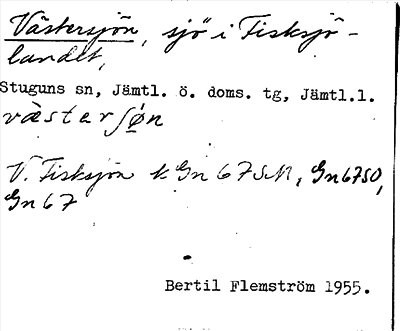 Västersjön, sjö i Fisksjö-
landet,
Stuguns sn, Jämtl. ö. doms. tg, Jämtl.l.
västerʃøn
V. Fisksjön k Gn 67 SM, Gn67SO,
Gn 67
Bertil Flemström 1955.